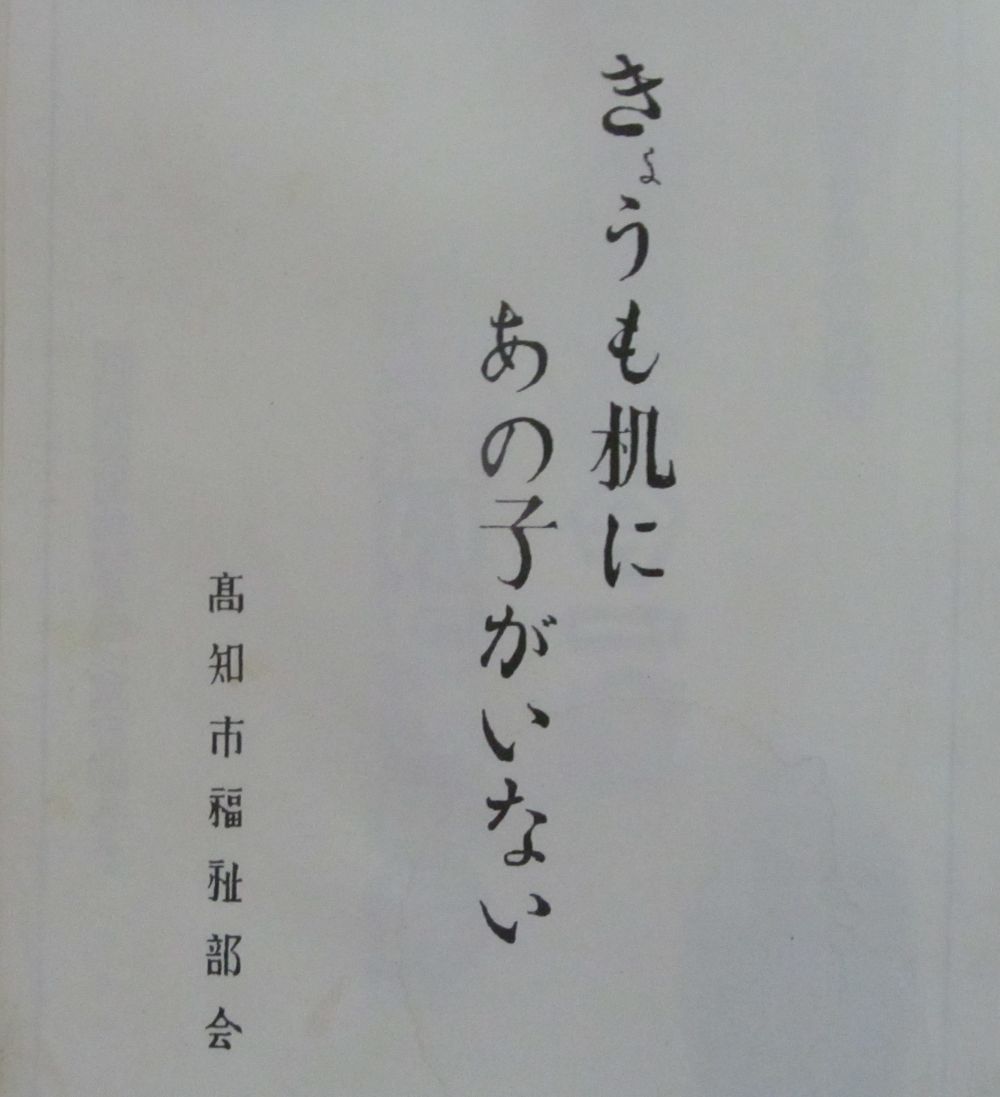 きょうも机に
あの子がいない
髙知市福祉部会